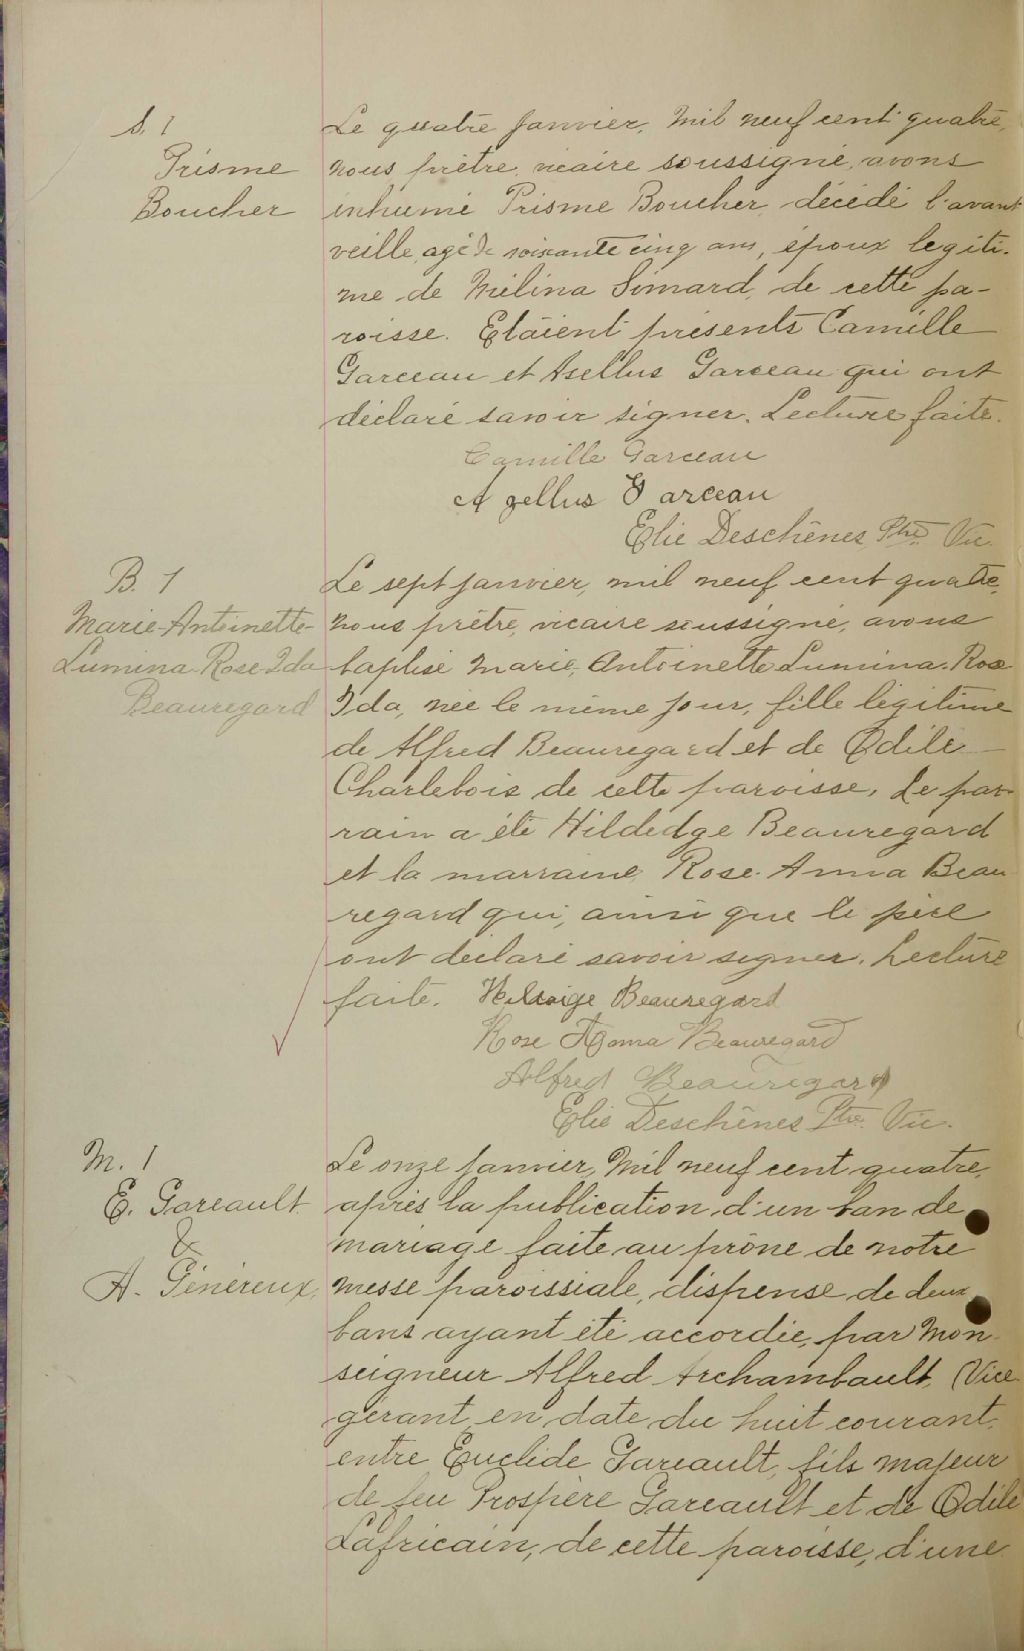 S. 1
Prisme
Boucher
Le quatre janvier, mil neuf cent quatre,
nous prêtre, vicaire soussigné, avons
inhumé Prisme Boucher, décédé l'avant
veille, agé de soixante cinq ans, époux legiti-
me de Mélina Simard, de cette pa-
roisse. Etaient présents Camille
Garceau et Asellus Garceau qui ont
déclaré savoir signer. Lecture faite.
Camille Garceau
Azellus Garceau
Elie Deschênes Ptre Vic.
B. 1
Marie-Antoinette-
Lumina-Rose-Ida
Beauregard
Le sept janvier, mil neuf cent quatre,
nous prêtre, vicaire soussigné, avons
baptisé Marie, Antoinette Lumina. Rose
Ida, née le même jour, fille légitime
de Alfred Beauregard et de Odile
Charlebois de cette paroisse. Le par-
rain a été Hildedge Beauregard
et la marraine Rose-Anna Beau
regard qui, ainsi que le père
ont déclaré savoir signer. Lecture
faite.
Beauregard
Rose Beauregard
Alfred Beauregard
Elie Deschênes Ptre Vic.
M. 1
E. Gareault
&
A. Généreux,
Le onze janvier, mil neuf cent quatre,
après la publication d'un ban de
mariage faite au prône de notre
messe paroissiale, dispense de deux
bans ayant été accordée, par Mon-
seigneur Alfred Archambault, Vice
gérant, en date du huit courant,
entre Euclide Gareault, fils majeur
de feu Prospère Gareault et de Odile
Lafricain, de cette paroisse, d'une